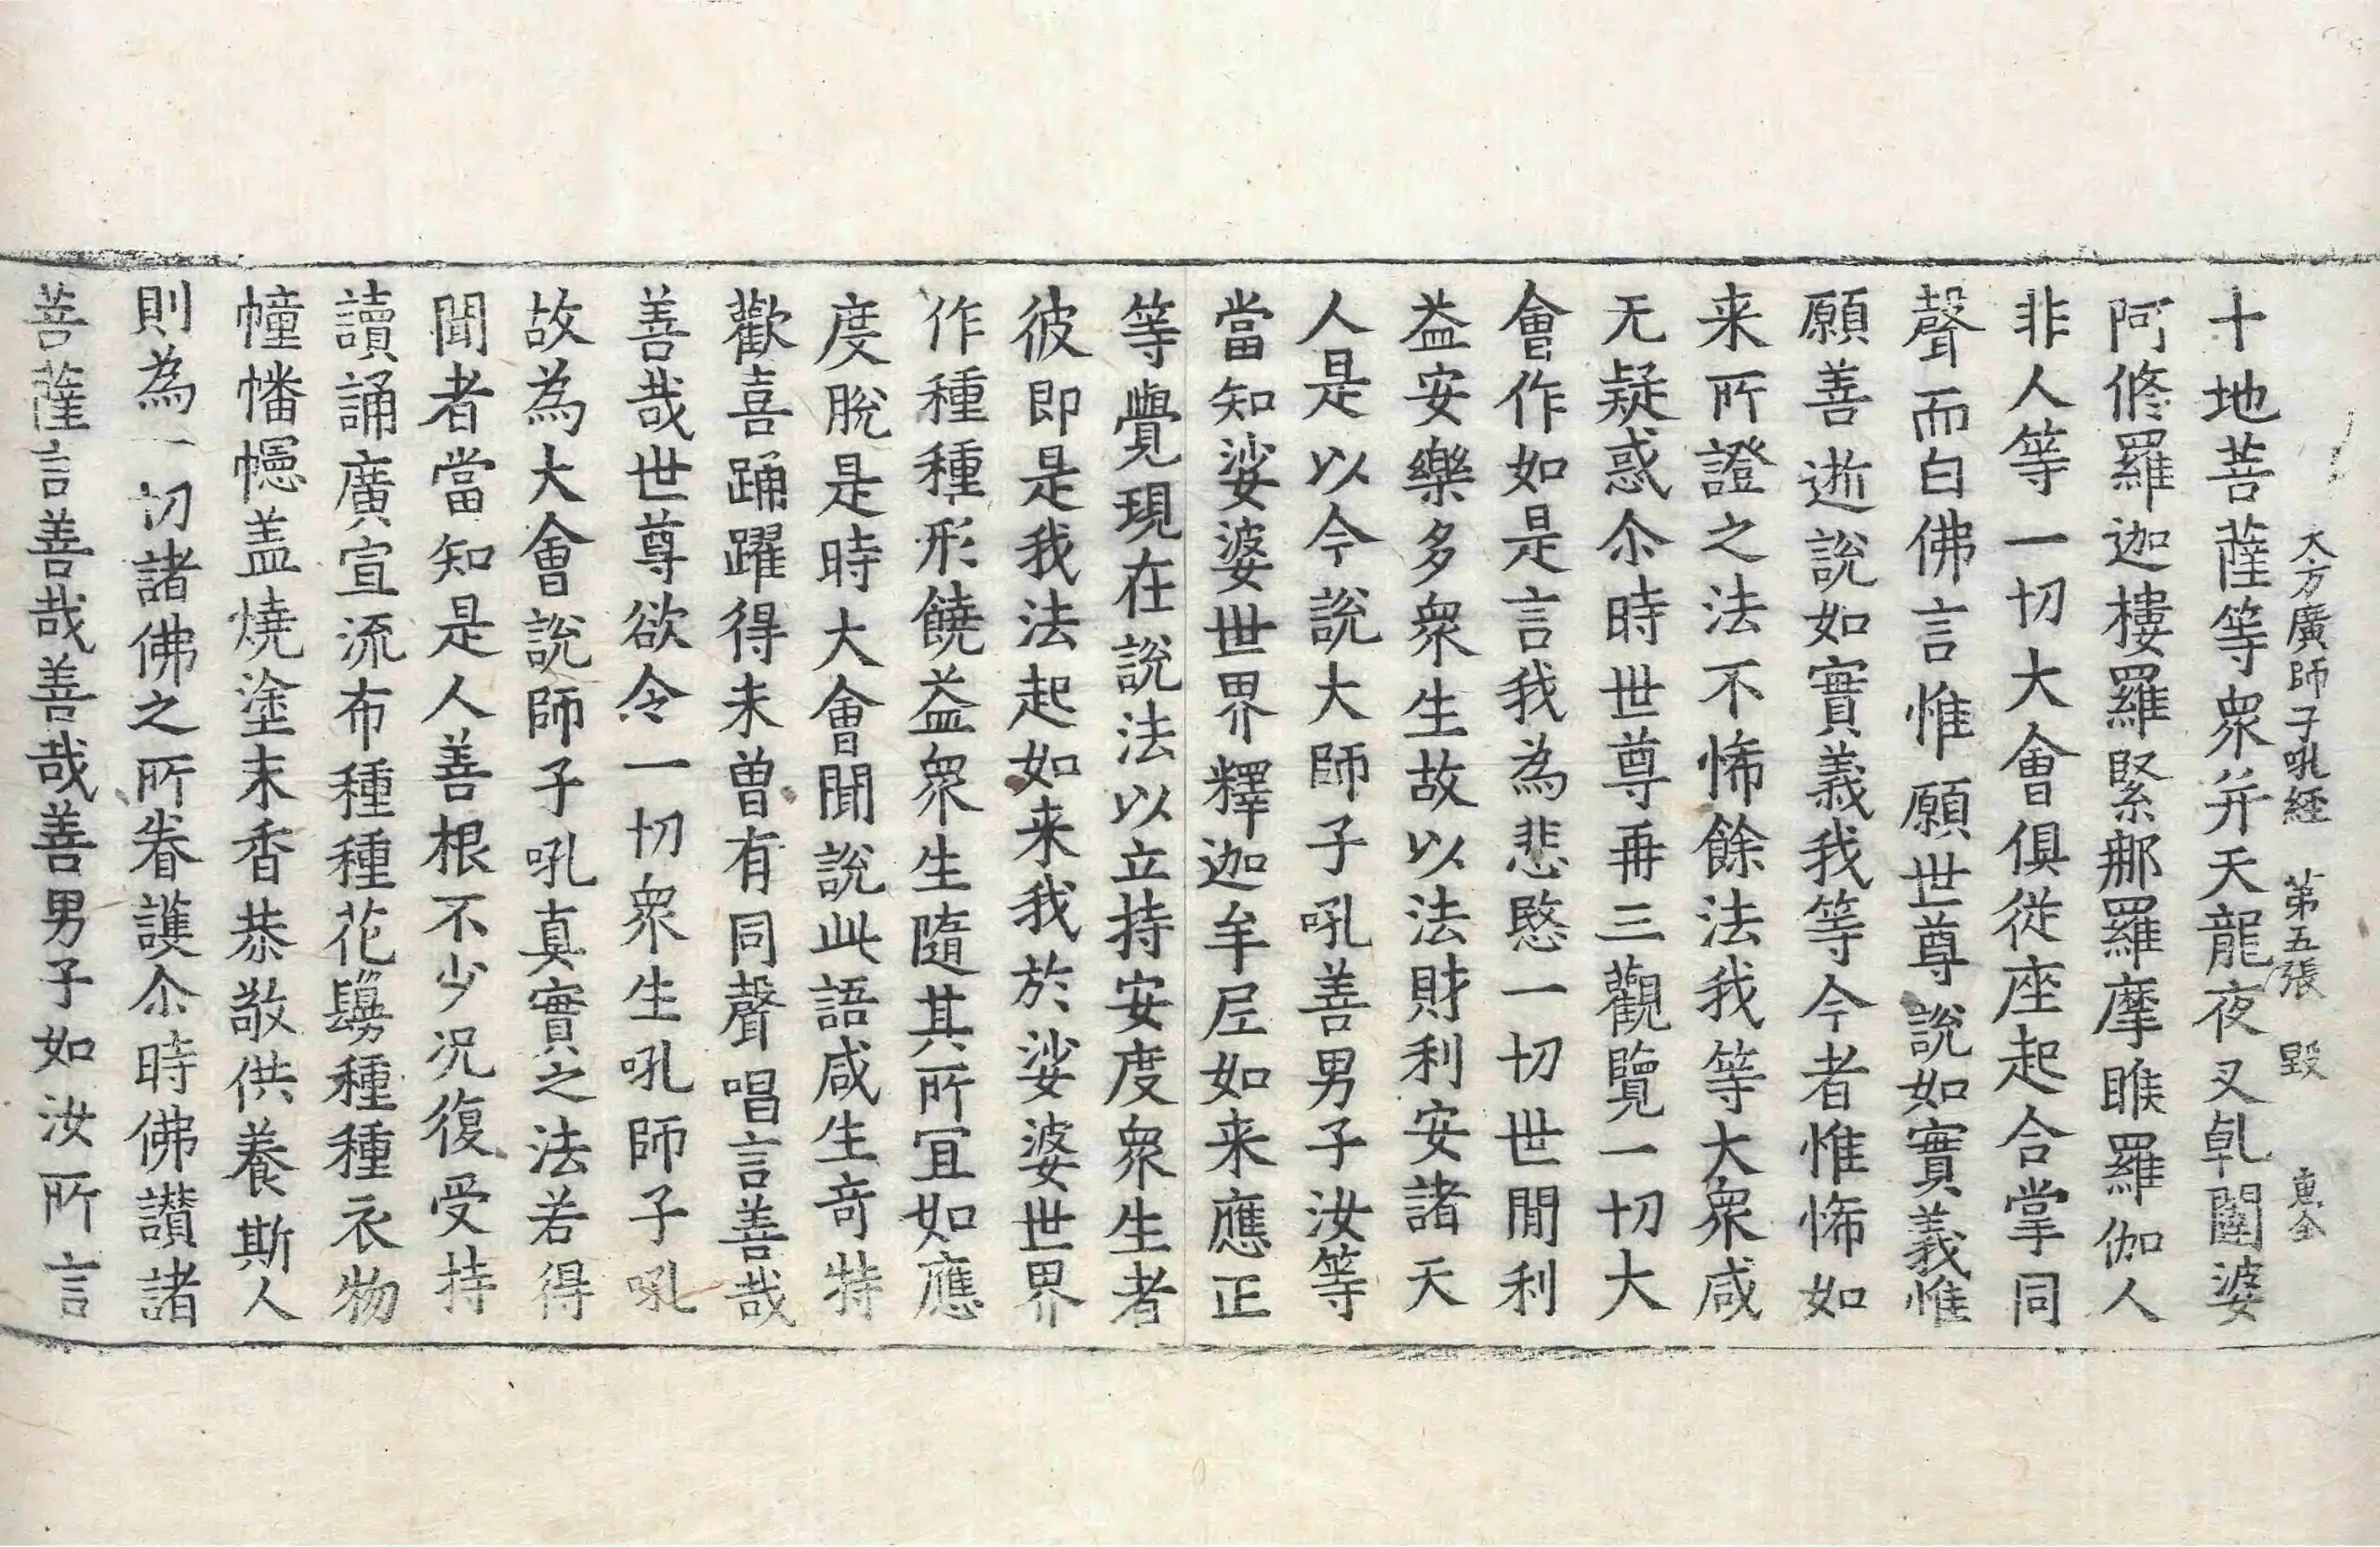 大方廣師子吼経 第五張 毀 惠全
十地菩薩等衆并天龍夜叉乹闥婆
阿修羅迦樓羅緊那羅摩睺羅伽人
非人等一切大會俱從座起合掌同
聲而白佛言惟願世尊說如實義惟
願善逝說如實義我等今者惟悕如
来所證之法不悕餘法我等大衆咸
无疑惑尒時世尊再三觀覽一切大
會作如是言我為悲愍一切世間利
益安樂多衆生故以法財利安諸天
人是以今說大師子吼善男子汝等
當知娑婆世界釋迦牟尼如来應正
等覺現在說法以立持安度衆生者
彼即是我法起如来我於娑婆世界
作種種形饒益衆生隨其所冝如應
度脫是時大會聞說此語咸生竒特
歡喜踊躍得未曾有同聲唱言善哉
善哉世尊欲令一切衆生吼師子吼
故為大會說師子吼真實之法若得
聞者當知是人善根不少况復受持
讀誦廣宣流布種種花鬘種種衣物
幢幡幰盖燒塗末香恭敬供養斯人
則為一切諸佛之所眷護尒時佛讃諸
菩薩言善哉善哉善男子如汝所言